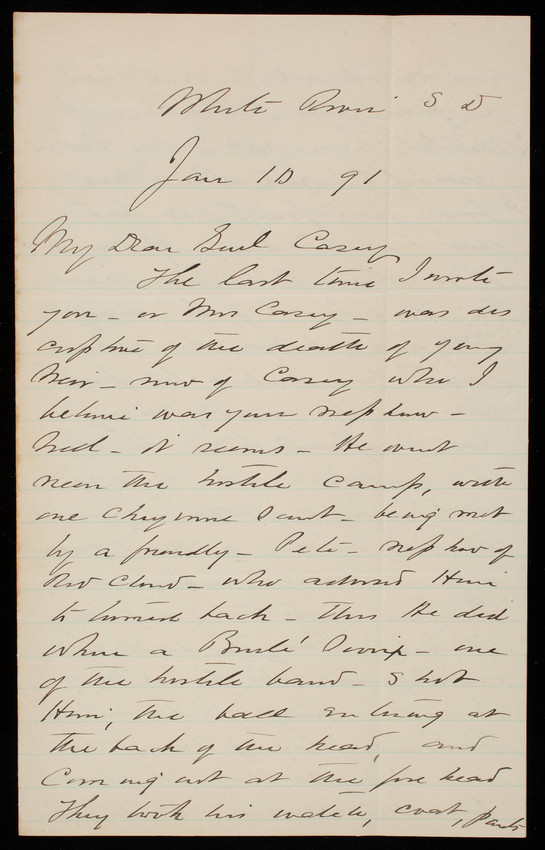 White River S D
Jan 10 91
My Dear Genl Casey
The last time I wrote
you - or Mrs Casey - was des
criptive of the death of young
now of Casey who I
believe was your nephew -
Well - it seems - He went
near the hostile camp, with
one Cheyenne Scout - being met
by a friendly - Pete - nephew of
Red Cloud - who advised Him
to turned back - this He did
when a Brulé Sioux - one
of the hostile band - shot
Him, the ball entering at
the back of the head, and
Coming out at the forehead
They took his watch, coat, pants